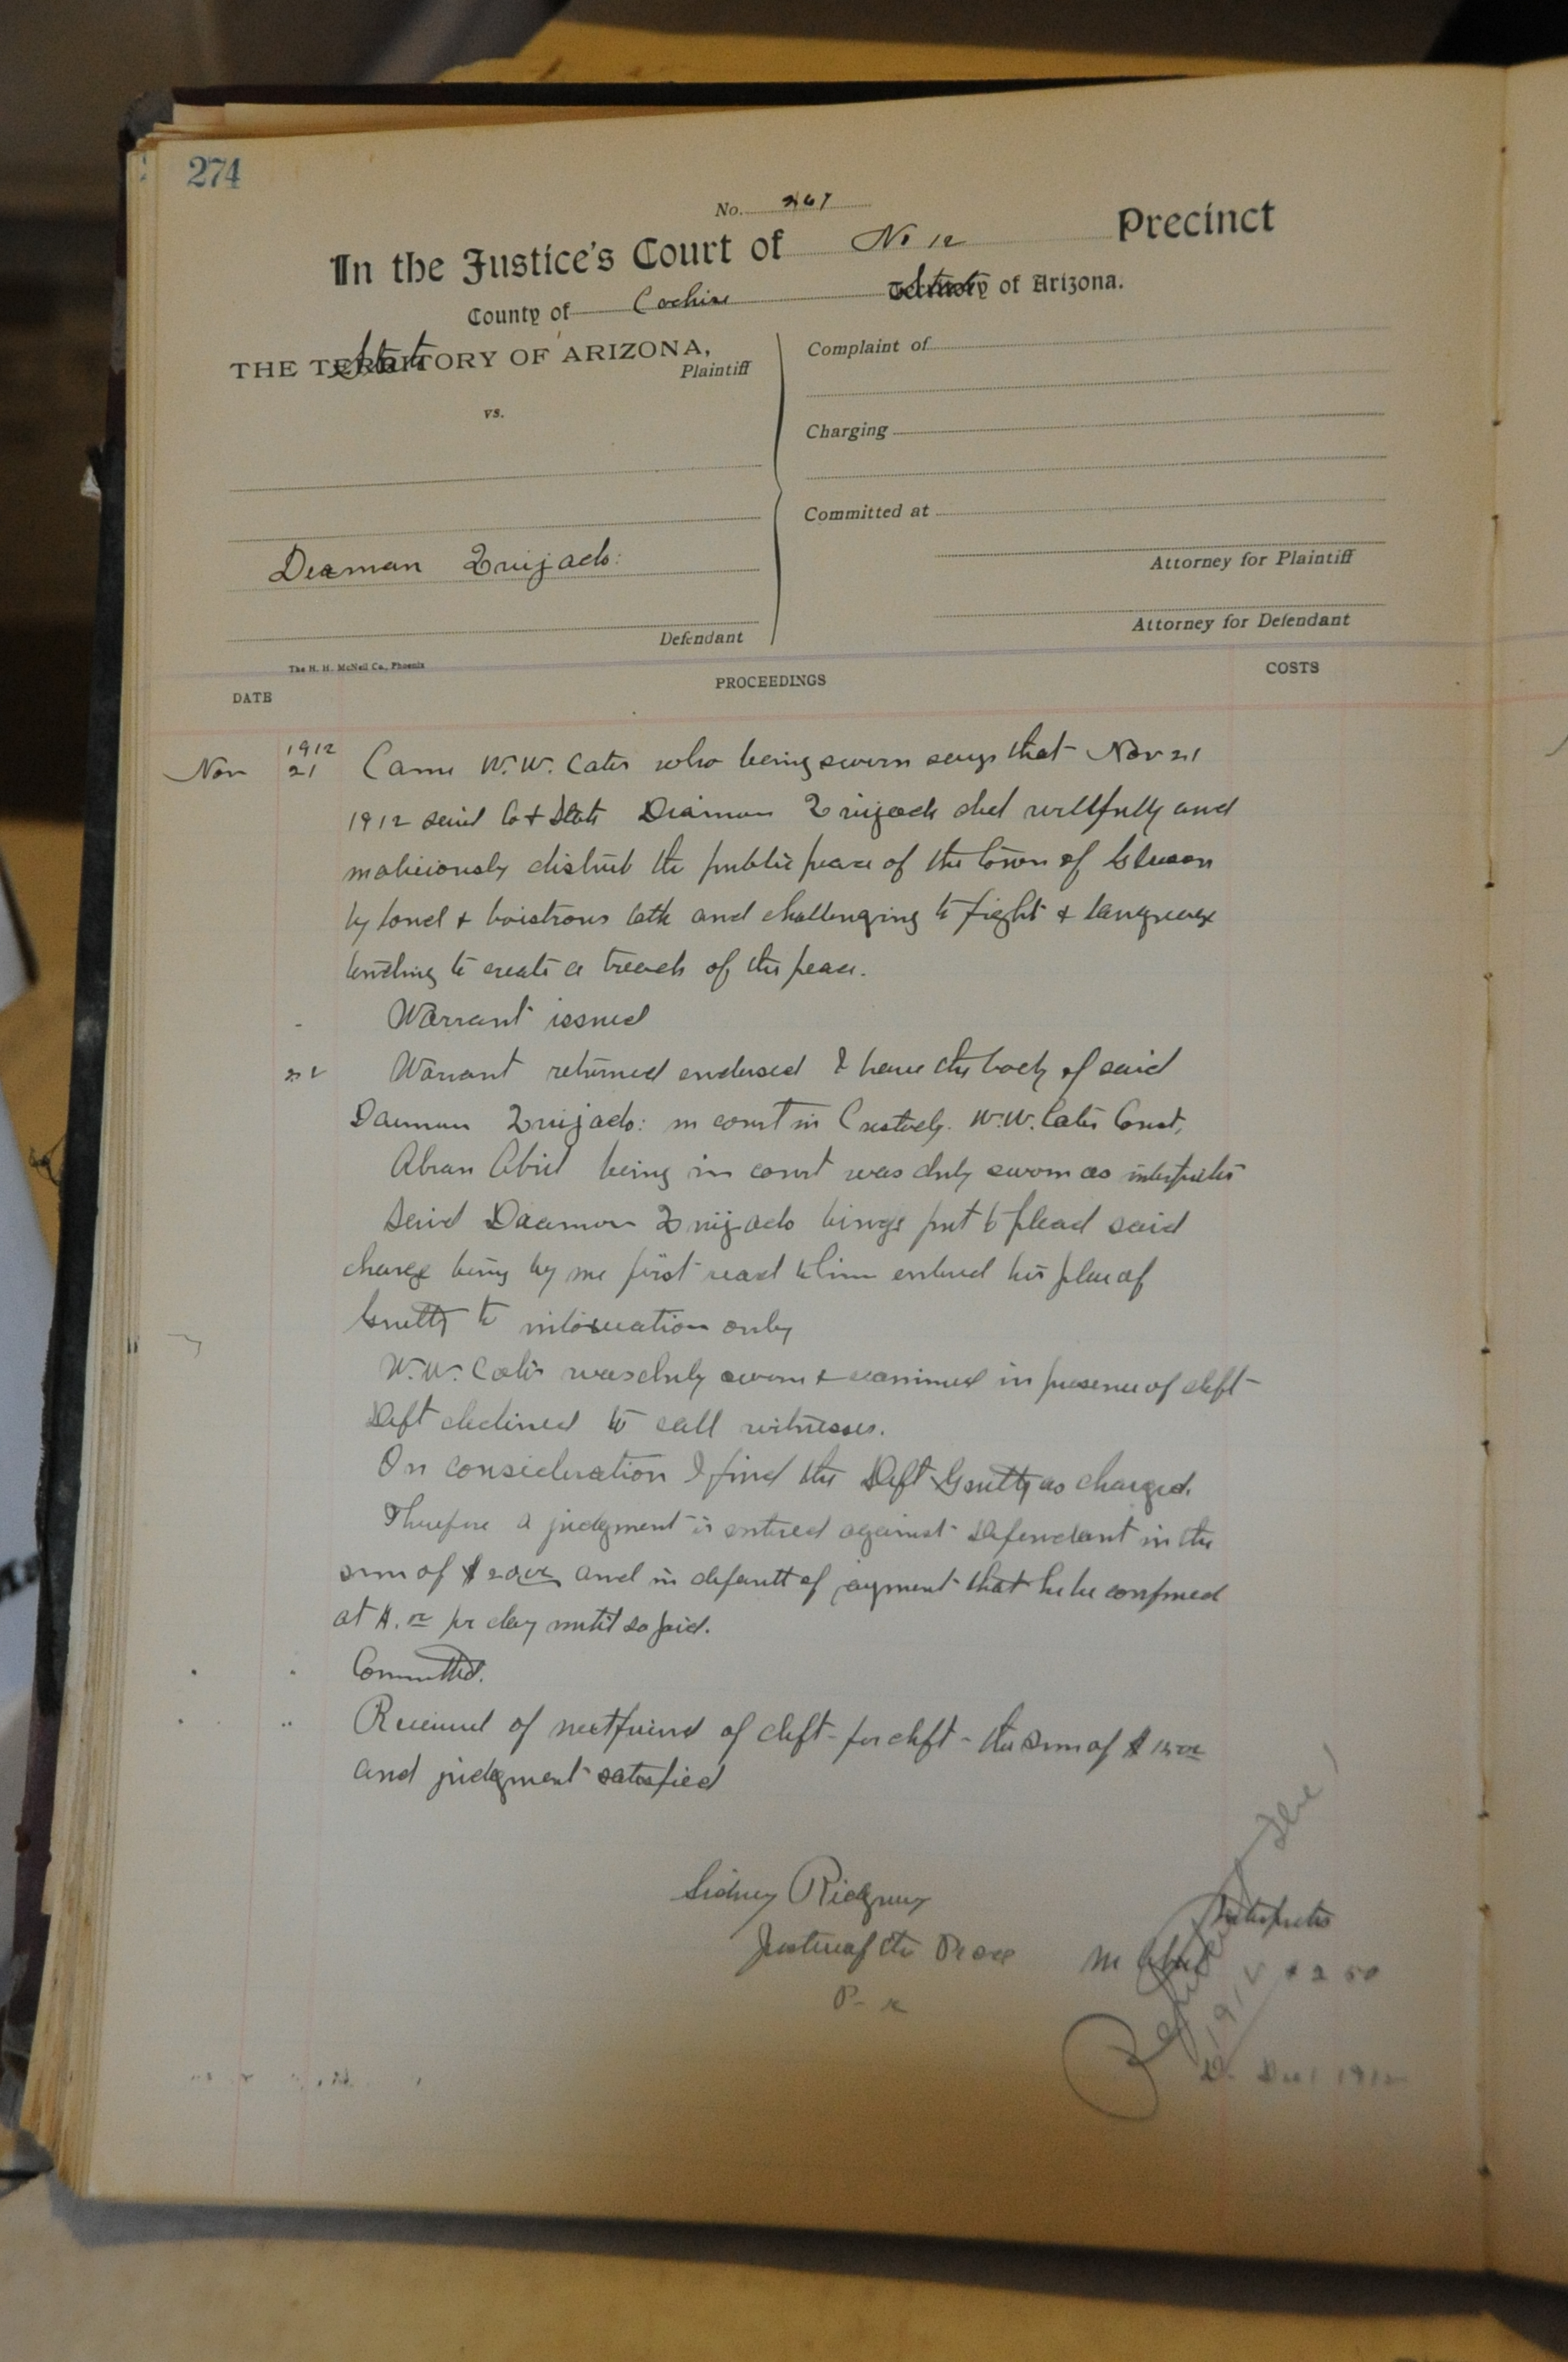 274
No. 267
In the Justice's Court of No 12 Precinct
County of Cochise State of Arizona.
THE TERRITORY OF ARIZONA,
State
Plaintiff
vs.
Defendant
Complaint of
Charging
Committed at
Attorney for Plaintiff
Attorney for Defendant
The H. H. McNeil Co., Phoenix
DATE
PROCEEDINGS
COSTS
1912
Nov 21 Came W.W. Cates who being sworn says that Nov 21
1912 said Co & State did willfully and
maliciously disturb the public peace of the town of Gleeson
by loud & boistrous talk and challenging to fight & language
tending to create a breach of the peace.
Warrant issued
22 Warrant returned endorsed I have the body of said
in court in Custody. W.W. Cates Const.
Abran Abril being in court was duly sworn as interpreter
Said being put to plead said
charge being by me first read to him entered his plea of
Guilty to intoxication only
W.W. Cates was duly sworn & examined in presence of deft
Deft declined to call witnesses.
On consideration I find the Deft Guilty as charged.
Therefore a judgment is entered against Defendant in the
sum of and in default of payment that he be confined
at pr day until so paid.
Committed.
Received of next friend of deft - for deft - the sum of
and judgment satisfied
Sidney Ridgway
Justice of the Peace
Interpreter
Abril
2 50
Dec 1 1912